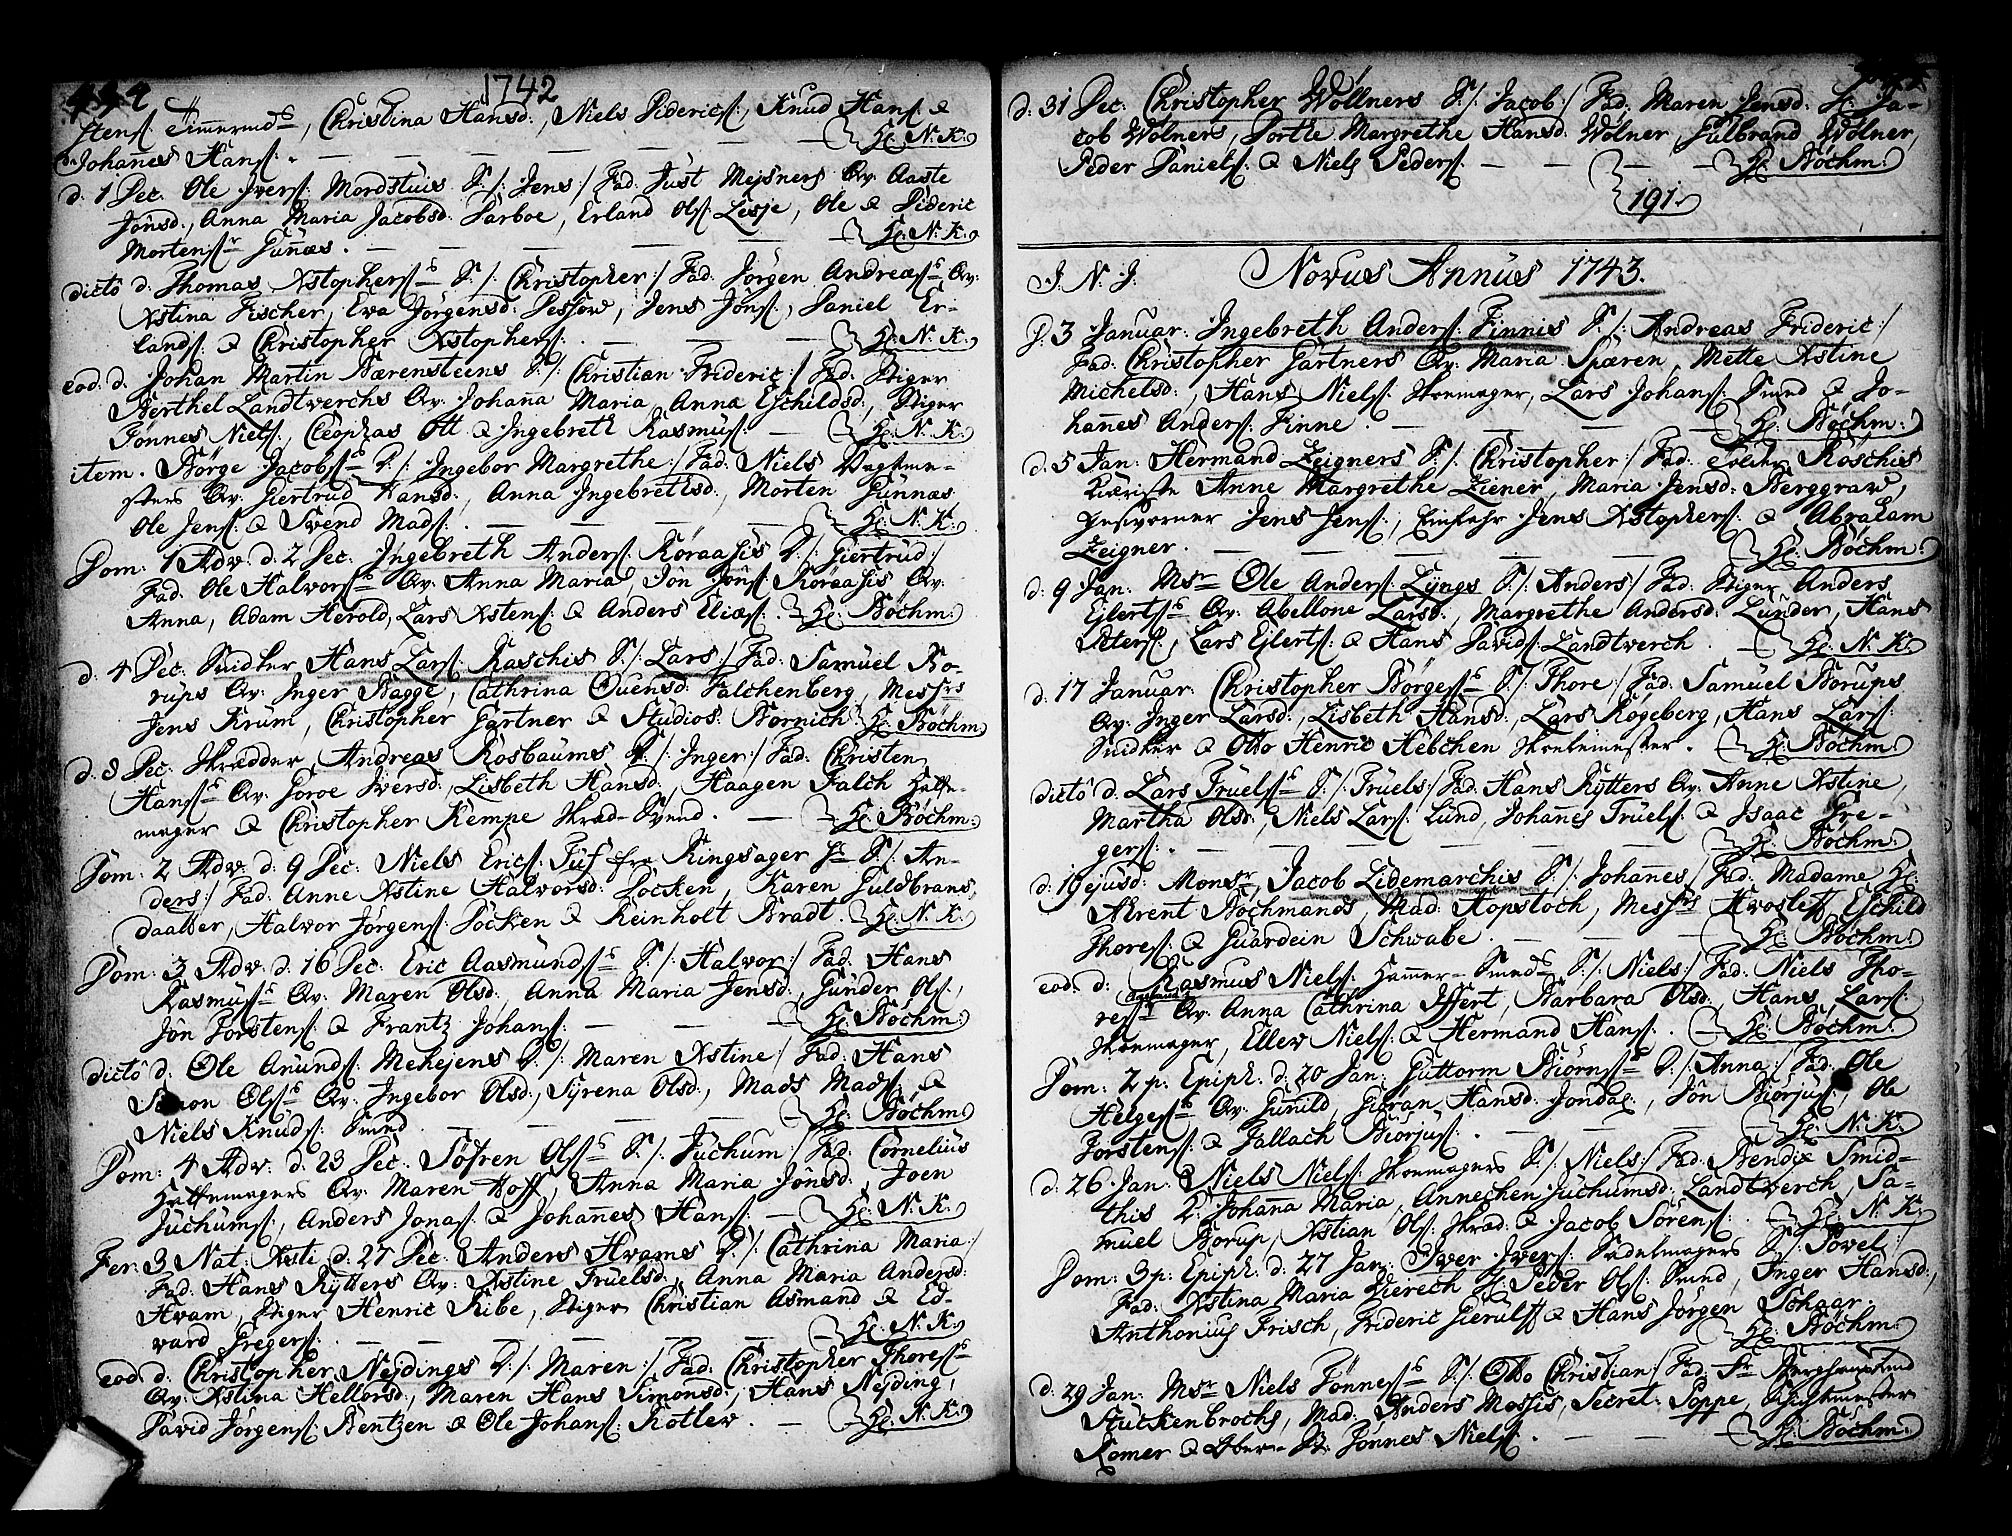 1742
stens: Timermds, Christina Hansd:, Niels Diderics:, Knud Hans: &
Johanes Hans: — Hr: N. K:
d: 1 Dec. Ole Ivers: Mordstuis S:/: Jens:/ Fad: Just Mejsners Qv: Aaste
Jönsd:, Anna Maria Jacobsd: Farboe, Erland Ols: Lesje, Ole & Dideric
Mortensr Gunnæs. — Hr: N. K:
dictô d: Thomas Xstophersens S:/: Christopher:/ Fad: Jörgen Andreæs: Qv:
Xstina Fischer, Eva Jörgensd: Pessow, Jens Jöns:, Daniel Er-
lands: & Christopher Xstophers: — Hr: N. K:
eod. d. Johan Martin Bærensteens S:/: Christian Frideric:/ Fad: Stiger
Berthel Landtverchs Qv: Johana Maria, Anna Eschildsd:, Stiger
Tönnes Niels:, Cleophas Ott & Ingebret Rasmus: — Hr: N. K:
item. Börge Jacobs: D:/: Ingebor Margrethe:/ Fad: Niels Vagtme-
sters Qv: Giertrud Hansd:, Anna Ingebretsd:, Morten Gunnæs
Ole Jens: & Svend Mads: — Hr: N. K:
Dom: 1 Adv. d: 2 Dec. Ingebreth Anders: Röraasis D:/: Giertrud:/
Fad: Ole Halvors: Qv: Anna Maria, Jôn Jöns: Röraasis Qv:
Anna, Adam Herold, Lars Xstens: & Anders Elias: — Hr: Böchm:
d: 4 Dec. Snidker Hans Lars: Raschis S:/: Lars:/ Fad: Samuel Bo-
rups Qv: Inger Bagge, Cathrina Ouensd: Falchenberg, Messrs
Jens Krum, Christopher Gartner & Studios: Bornich Hr: Böchm
d: 8 Dec. Skrædder Andreas Rosbaums D:/: Inger:/ Fad: Christen
Hans: Qv: Goroe Iversd:, Lisbeth Hansd:, Haagen Falch
mager & Christopher Kempe Skræd-Svend. — Hr: Böchm:
Dom: 2 Adv: d: 9 Dec. Niels Erics: Tuf fra Ringsager S:/: An-
ders:/ Fad: Anne Xstine Halvorsd: Docken, Karen Guldbrans
daatter, Halvor Jörgens: Docken & Reinholt Bradt Hr: N. K:
Dom: 3 Adv: d: 16 Dec: Eric Aasmunds: S:/: Halvor:/ Fad: Hans
Rasmus: Qv: Maren Olsd:, Anna Maria Jensd:, Gunder Ols:,
Jôn Torstens: & Frantz Johans: — Hr: Böchm:
dictô d: Ole Amunds: Mehejens D:/: Maren Xstine:/ Fad: Hans
Simon Ols: Qv: Ingebor Olsd:, Syrena Olsd:, Mads Mads: &
Niels Knuds: Smed. — Hr: Böchm
Dom: 4 Adv: d: 23 Dec. Söfren Ols: S:/: Juchum:/ Fad: Cornelius
Qv: Maren Hoff, Anna Maria Jönsd:, Joen
Juchums:, Anders Jonas: & Johannes Hans: — Hr: N. K:
Fer: 3 Nat: Xsti d: 27 Dec. Anders Hvams D:/: Cathrina Maria:/
Fad: Hans Rytters Qv: Xstine Truelsd:, Anna Maria Andersd:
Hvam, Stiger Henric Ribe, Stiger Christian Asmand & Ed-
vard Gregers: — Hr: N. K:
eod d: Christopher Nejdings D:/: Maren:/ Fad: Christopher Thores:
Qv: Xstina Hellersd:, Maren Hans Simonsd:, Hans Nejding,
David Jörgens: Bentzen & Ole Johans: Kotler. — Hr: N. K:
d: 31 Dec: Christopher Wöllners S:/: Jacob:/ Fad: Maren Jensd: Hr: Ja-
cob Wölners, Dorthe Margrethe Hansd: Wölner, Gulbrand Wölner,
Peder Daniels: & Niels Peders: — Hr: Böchm:
191
J. N. J. Novus Annus 1743.
d: 3 Januar: Ingebreth Anders: Finnis S:/: Andreas Frideric:/
Fad: Christopher Gartners Qv: Maria Spären, Mette Xstine
Michelsd:, Hans Niels: Skoemager, Lars Johans: Smed & Jo-
hannes Anders: Finne. — Hr: Böchm:
d: 5 Jan: Hermand Zeigners S:/: Christopher:/ Fad: Röschis
Kiæriste Anne Margrethe Ziener, Maria Jensd: Berggraw,
Gesvorner Jens Jens:, Einfahr Jens Xstophers: & Abraham
Zeigner. — Hr: Böchm:
d: 9 Jan: Msr Ole Anders: Lyngs S:/: Anders:/ Fad: Stiger Anders
Ejlerts: Qv: Abellone Larsd:, Margrethe Andersd: Lunder, Hans
Peters:, Lars Ejlerts: & Hans Davids: Landtverch. — Hr: N. K:
d: 17 Januar: Christopher Börges: S:/: Thore:/ Fad: Samuel Borups
Qv: Inger Larsd:, Lisbeth Hansd:, Lars Rögeberg, Hans Lars:
Snidker & Otto Henric Hebchen Skolemester. — Hr: Böchm:
dictô d: Lars Truels: S:/: Truels:/ Fad: Hans Rytters Qv: Anne Xstine,
Martha Olsd:, Niels Lars: Lund, Johannes Truels: & Isaac Gre-
gers: — Hr: Böchm:
d: 19 ejusd: Monsr Jacob Lidemarchis S:/: Johannes:/ Fad: Madame Hr:
Arent Böchmands, Mad: Hopstoch, Messrs Hvoslef, Eschild
Thores: & Guardein Schwabe. — Hr: Böchm:
eod: d: Rasmus Niels: Hammer-Smeds S:/: Niels:/ Fad: Niels Tho-
res: Qv: Anna Cathrina Iffert, Barbara Olsd:, Hans Lars:
Skoemager, Eller Niels: & Hermand Hans: — Hr: Böchm:
Dom: 2 p: Epiph: d: 20 Jan: Guttorm Biörns: D:/: Anna:/ Fad: Ole
Helges: Qv: Gunild, Giöran Hansd: Jondal:, Jôn Biörjus:, Ole
Torstens: & Tallach Biörjus: — Hr: N. K:
d: 26 Jan: Niels Niels: Skoemagers S:/: Niels:/ Fad: Bendix Smid-
this D: Johanna Maria, Annechen Juchumsd: Landtverch, Sa-
muel Borup, Xstian Ols: Skræd: & Jacob Sörens: — Hr: N. K:
Dom: 3 p: Epiph: d: 27 Jan: Iver Ivers: Sadelmagers S:/: Povel:/
Fad: Xstina Maria Dierech, Peder Ols: Smed, Inger Hansd:,
Anthonius Frisch, Frideric Gierulff & Hans Jörgen Schaar.
Hr: Böchm:
d: 29 Jan: Msr Niels Tönnes: S:/: Otto Christian:/ Fad: Fr Berghauptmd
Stuckenbrochs, Mad: Anders Mossis, Secret: Poppe, Skigtmester
Romer & Ober-St: Tönnes Niels: — Hr: Böchm: